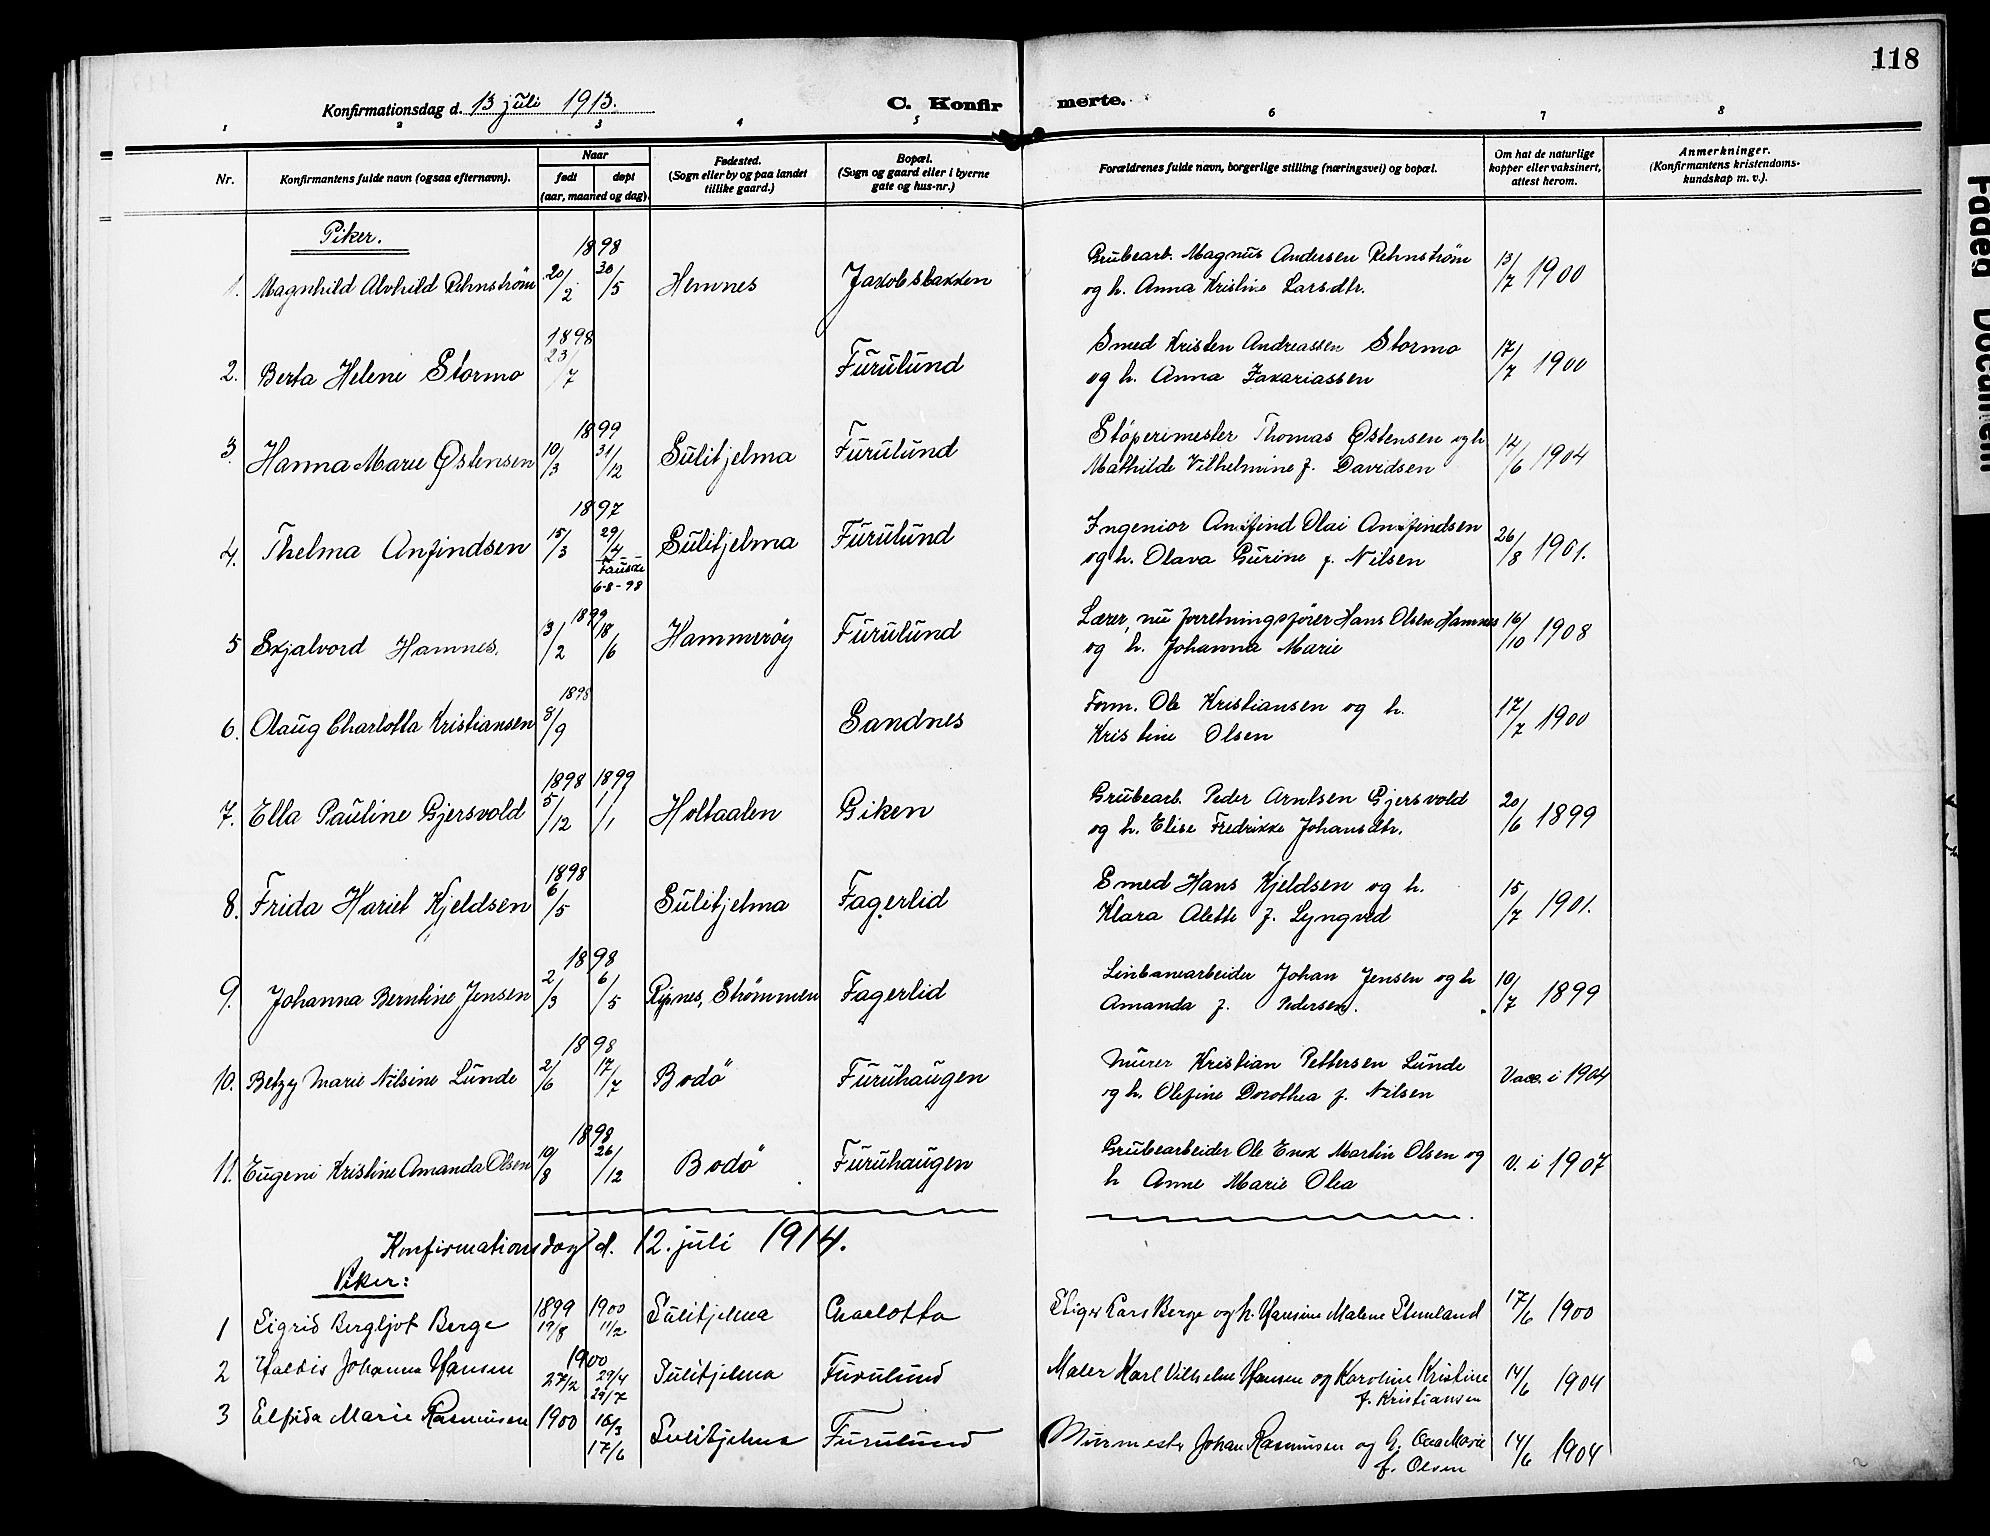 118
Konfirmationsdag d. 13 juli 1913.
C. Konfirmerte.
1 2 3 4 5 6 7 8
Nr.
Konfirmantens fulde navn (ogsaa efternavn).
Naar
født døpt
(aar, maaned og dag)
Fødested.
(Sogn eller by og paa landet
tillike gaard.)
Bopæl.
(Sogn og gaard eller i byerne
gate og hus-nr.)
Forældrenes fulde navn, borgerlige stilling (næringsvei) og bopæl.
Om hat de naturlige
kopper eller vaksinert,
attest herom.
Anmerkninger.
(Konfirmantens kristendoms-
kundskap m. v.).
Piker.
1898
1. Magnhild Alvhild Rehnström 20/2 30/5 Hemnes Jakobsbakken Grubearb. Magnus Andersen Rehnström 13/7 1900
og h. Anna Kristine Larsdtr.
1898
2. Berta Helene Stormo 23/7 Furulund Smed Kristen Andreassen Stormo 17/7 1900
og h. Anna Zakariassen
1899
3. Hanna Marie Østensen 10/3 31/12 Sulitjelma Furulund Støperimester Thomas Østensen og h 14/6 1904
Mathilde Vilhelmine f. Davidsen
1897
4. Thelma Anfindsen 15/3 29/4 Sulitjelma Furulund Ingeniør Anfind Olai Anfindsen 26/8 1901.
Fauske
6-8-98
og h. Olava Gurine f. Nilsen
1899
5 Skjalvord Hamnes. 3/2 18/6 Hammerøy Furulund Lærer, nu forretningsfører Hans Olsen Hamnes 16/10 1908
og h. Johanna Marie
1898
6. Olaug Charlotta Kristiansen 8/9 Sandnes Form. Ole Kristiansen og h. 17/7 1900
Kristine Olsen
1898 1899
7. Ella Pauline Gjersvold 5/12 1/1 Holtaalen Giken Grubearb. Peder Arntsen Gjersvold 20/6 1899
og h. Elise Fredrikke Johansdtr.
1898
8. Frida Hariet Kjeldsen 6/5 Sulitjelma Fagerlid Smed Hans Kjeldsen og h. 15/7 1901.
Klara Alette f. Lyngved
1898
9. Johanna Berntine Jensen 2/3 6/5 Strømmen Fagerlid Linbanearbeider Johan Jensen og h 10/7 1899
Amanda f. Pedersen.
1898
10. Betzy Marie Nilsine Lunde 2/6 17/7 Bodö Furuhaugen Murer Kristian Pettersen Lunde Vacc. i 1904
og h. Olefine Dorothea f. Nilsen
1898
11. Eugeni Kristine Amanda Olsen 10/8 26/12 Bodö Furuhaugen Grubearbeider Ole Enok Martin Olsen og V. i 1907
h Anne Marie Olea
Konfirmationsdag d. 12. juli 1914.
Piker:
1 Sigrid Bergljot Berge 1899 19/8 1900 11/2 Sulitjelma Charlotta Stiger Lars Berge og h. Hansine Malene Stemland 17/6 1900
2 Haldis Johanna Hansen 1900 27/2 29/4 Sulitjelma Furulund Maler Karl Vilhelm Hansen og Karoline Kristine 14/6 1904
29/7
f. Kristiansen
3 Elfrida Marie Rasmussen 1900 16/3 Sulitjelma Furulund Murmestr Johan Rasmussen og h. Ona Marie 14/6 1904
17/6
f. Olsen